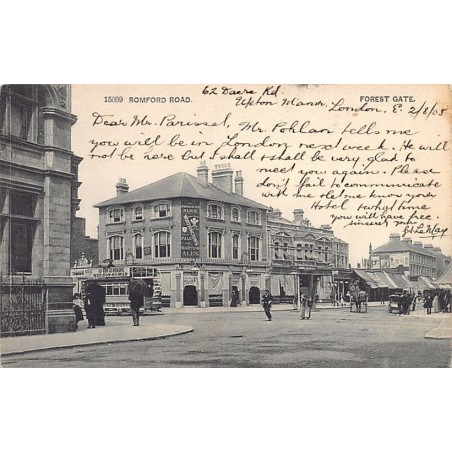 62 Dacre Rd
15089 ROMFORD ROAD.
FOREST GATE.
Upton Manor London, E. 2/8/05
Dear Mr. Parissel, Mr. Pohlan tells me
you will be in London next week. He will
not be here but I shall be very glad to
meet you again. Please
don't fail to communicate
with me and let me know yr
Hotel & what time
you will have free.
Sincerely yours
LeMay
ALES
PALE
ALES